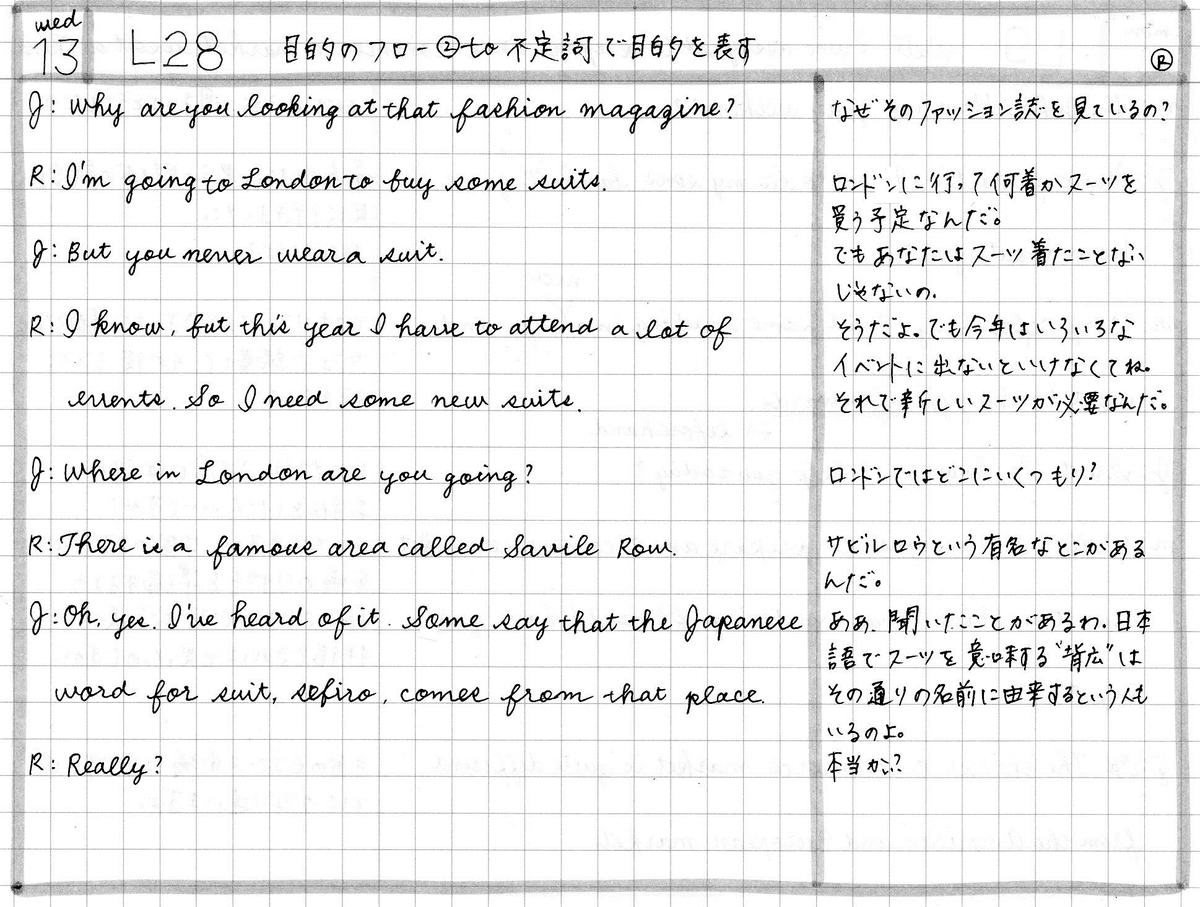 wed
13
L28 目的のフロー②to 不定詞で目的を表す
Ⓡ
J: Why are you looking at that fashion magazine?
なぜそのファッション誌を見ているの?
R: I'm going to London to buy some suits.
ロンドンに行って何着かスーツを
買う予定なんだ。
J: But you never wear a suit.
でもあなたはスーツ着たことない
じゃないの.
R: I know, but this year I have to attend a lot of
events. So I need some new suits.
そうだよ。でも今年はいろいろな
イベントに出ないといけなくてね。
それで新しいスーツが必要なんだ。
J: Where in London are you going?
ロンドンではどこにいくつもり?
R: There is a famous area called Savile Row.
サビルロウという有名なとこがある
んだ。
J: Oh, yes. I've heard of it. Some say that the Japanese
word for suit, sefiro, comes from that place.
ああ、聞いたことがあるわ.日本
語でスーツを意味する"背広"は
その通りの名前に由来するという人も
いるのよ。
R: Really?
本当かい?